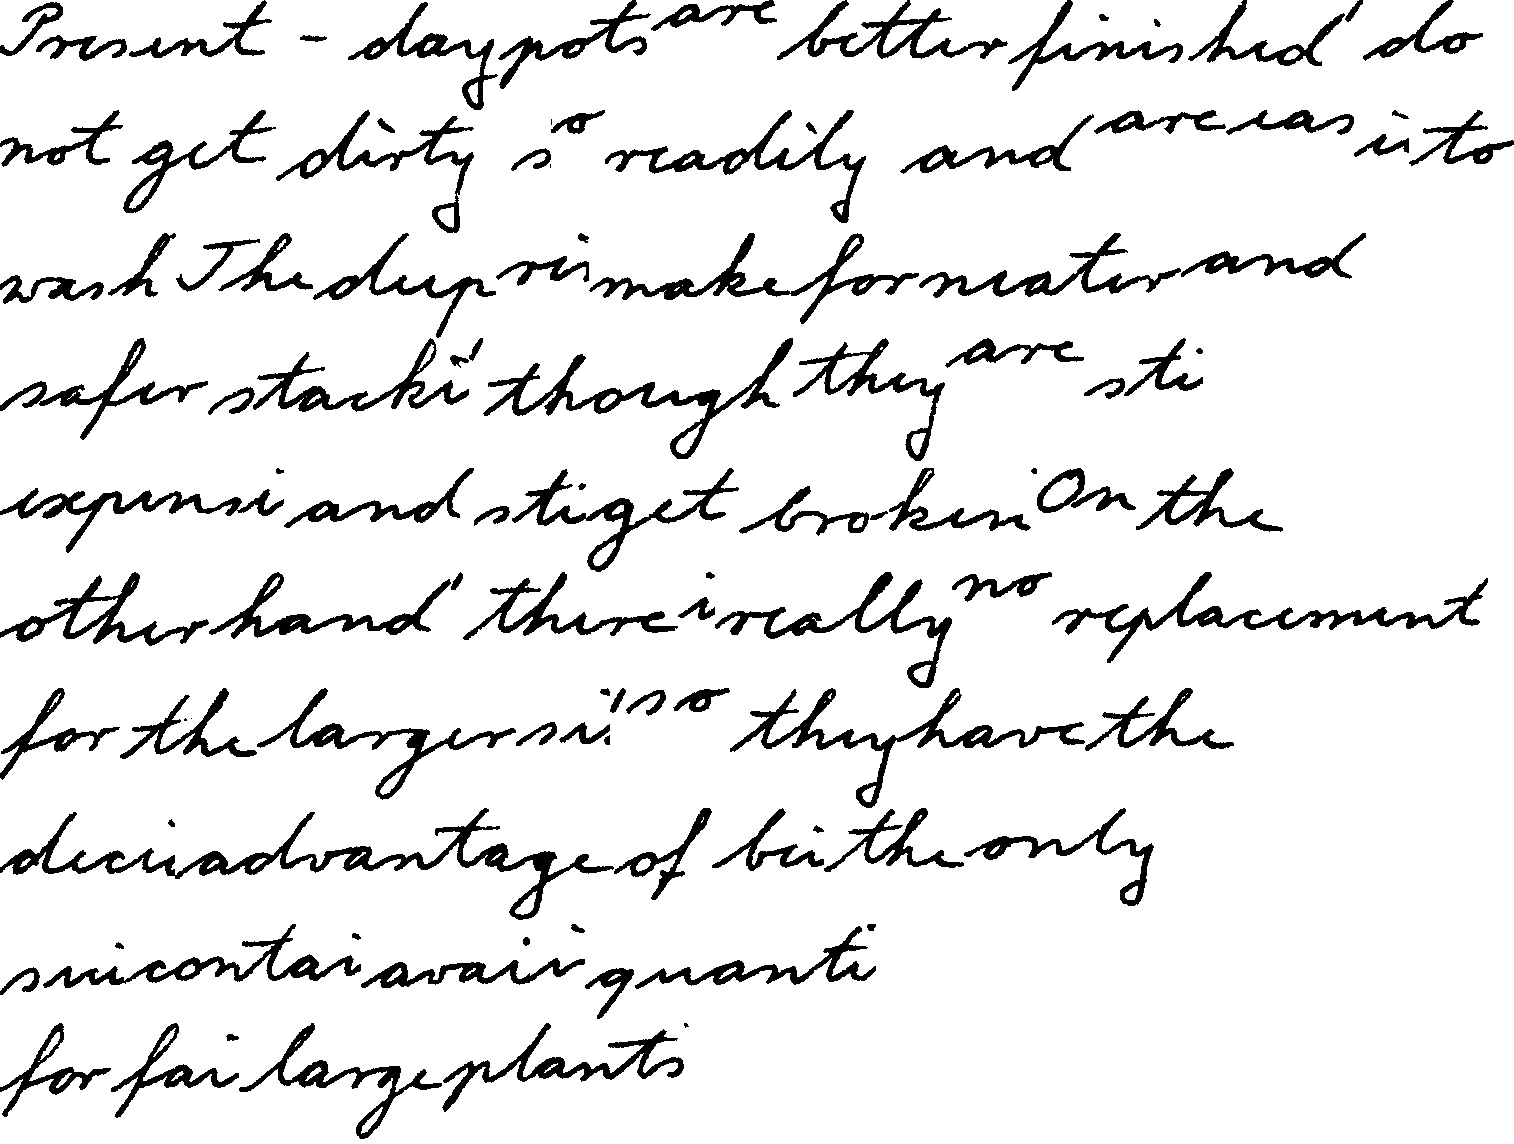 Present - day pots are better finished' do
not get dirty so readily and are easi to
wash The deep rim make for neater and
safer stacki' though they are sti
expensi and sti get broken On the
other hand' there i really no replacement
for the larger si' so they have the
deci advantage of bei the only
sui contai avai quanti
for fai large plants